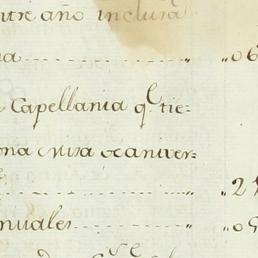 ntre año inclusa
na.................. „06
Capellania q.e tie-
ona misa de aniver-
.................. „2
nuales............ „05